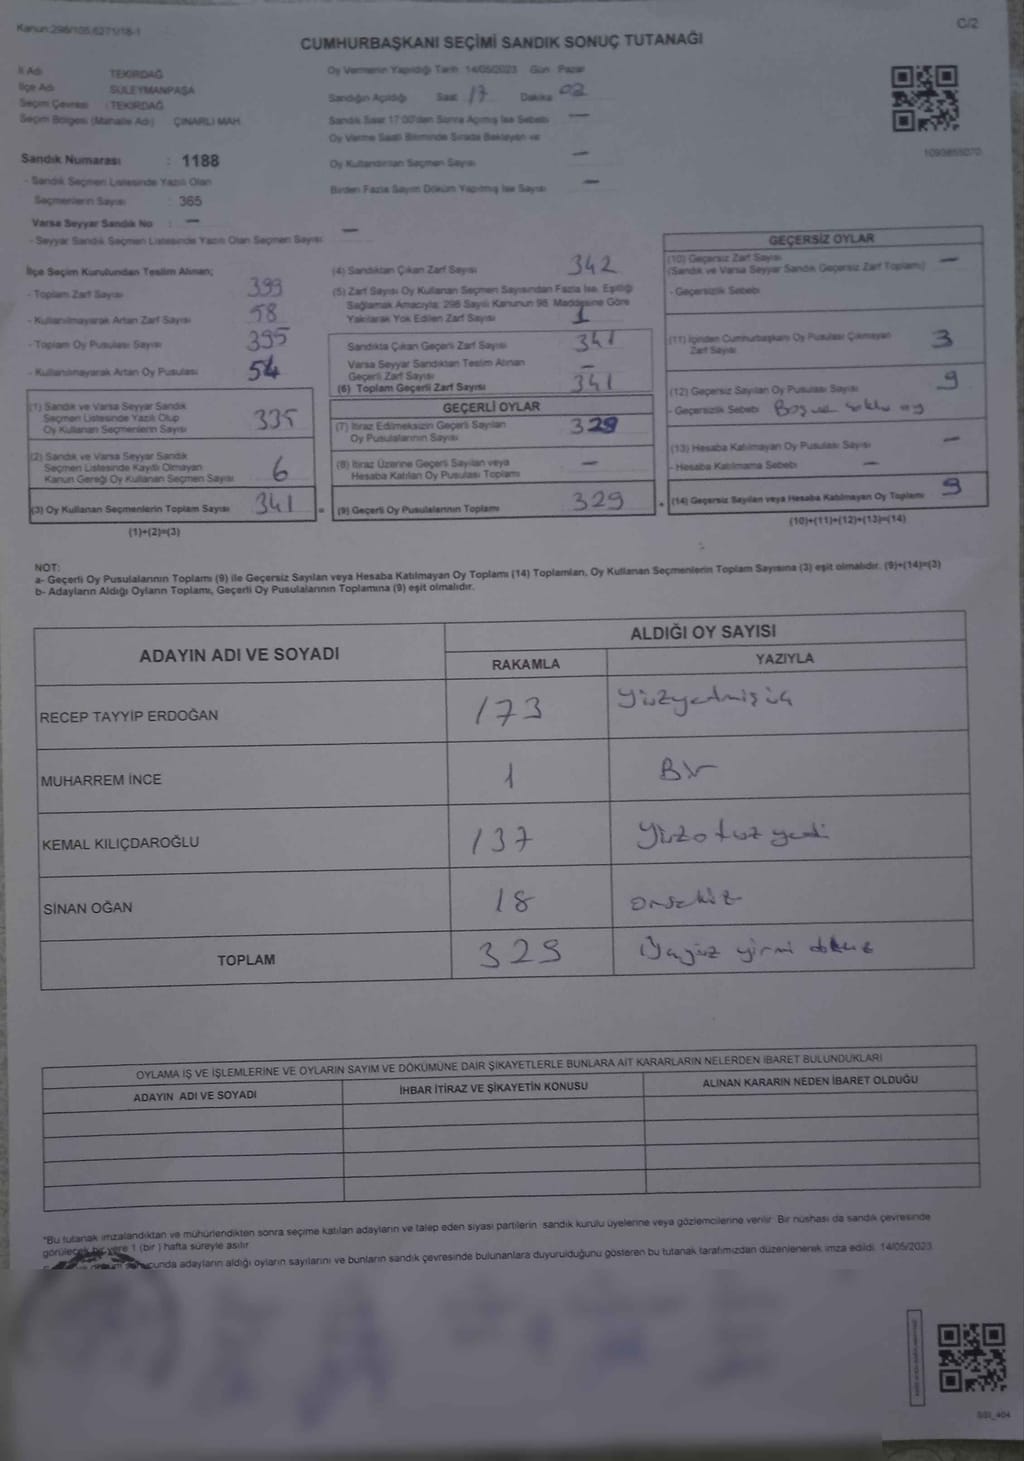 Kanun:298/105,6271/18-1
C/2
CUMHURBAŞKANI SEÇİMİ SANDIK SONUÇ TUTANAĞI
İl Adı TEKİRDAĞ
İlçe Adı SÜLEYMANPAŞA
Seçim Çevresi : TEKİRDAĞ
Seçim Bölgesi (Mahalle Adı) ÇINARLI MAH.
Sandık Numarası : 1188
- Sandık Seçmen Listesinde Yazılı Olan
Seçmenlerin Sayısı : 365
Varsa Seyyar Sandık No : —
- Seyyar Sandık Seçmen Listesinde Yazılı Olan Seçmen Sayısı —
Oy Vermenin Yapıldığı Tarih 14/05/2023 Gün Pazar
Sandığın Açıldığı Saat 17 Dakika 02
Sandık Saat 17:00'den Sonra Açılmış İse Sebebi —
Oy Verme Saati Bitiminde Sırada Bekleyen ve
Oy Kullandırılan Seçmen Sayısı —
Birden Fazla Sayım Döküm Yapılmış İse Sayısı —
1093855070
İlçe Seçim Kurulundan Teslim Alınan;
- Toplam Zarf Sayısı 399
- Kullanılmayarak Artan Zarf Sayısı 58
- Toplam Oy Pusulası Sayısı 395
- Kullanılmayarak Artan Oy Pusulası 54
(1) Sandık ve Varsa Seyyar Sandık
Seçmen Listesinde Yazılı Olup
Oy Kullanan Seçmenlerin Sayısı 335
(2) Sandık ve Varsa Seyyar Sandık
Seçmen Listesinde Kayıtlı Olmayan
Kanun Gereği Oy Kullanan Seçmen Sayısı 6
(3) Oy Kullanan Seçmenlerin Toplam Sayısı 341 =
(1)+(2)=(3)
(4) Sandıktan Çıkan Zarf Sayısı 342
(5) Zarf Sayısı Oy Kullanan Seçmen Sayısından Fazla İse, Eşitliği
Sağlamak Amacıyla; 298 Sayılı Kanunun 98. Maddesine Göre
Yakılarak Yok Edilen Zarf Sayısı 1
Sandıkta Çıkan Geçerli Zarf Sayısı 341
Varsa Seyyar Sandıktan Teslim Alınan
Geçerli Zarf Sayısı —
(6) Toplam Geçerli Zarf Sayısı 341
GEÇERLİ OYLAR
(7) İtiraz Edilmeksizin Geçerli Sayılan
Oy Pusulalarının Sayısı 329
(8) İtiraz Üzerine Geçerli Sayılan veya
Hesaba Katılan Oy Pusulası Toplamı —
(9) Geçerli Oy Pusulalarının Toplamı 329 +
GEÇERSİZ OYLAR
(10) Geçersiz Zarf Sayısı
(Sandık ve Varsa Seyyar Sandık Geçersiz Zarf Toplamı) —
- Geçersizlik Sebebi
(11) İçinden Cumhurbaşkanı Oy Pusulası Çıkmayan
Zarf Sayısı 3
(12) Geçersiz Sayılan Oy Pusulası Sayısı 9
- Geçersizlik Sebebi Boş oy
(13) Hesaba Katılmayan Oy Pusulası Sayısı —
- Hesaba Katılmama Sebebi —
(14) Geçersiz Sayılan veya Hesaba Katılmayan Oy Toplamı 9
(10)+(11)+(12)+(13)=(14)
NOT:
a- Geçerli Oy Pusulalarının Toplamı (9) ile Geçersiz Sayılan veya Hesaba Katılmayan Oy Toplamı (14) Toplamları, Oy Kullanan Seçmenlerin Toplam Sayısına (3) eşit olmalıdır. (9)+(14)=(3)
b- Adayların Aldığı Oyların Toplamı, Geçerli Oy Pusulalarının Toplamına (9) eşit olmalıdır.
ADAYIN ADI VE SOYADI
ALDIĞI OY SAYISI
RAKAMLA YAZIYLA
RECEP TAYYİP ERDOĞAN 173 Yüzyetmişüç
MUHARREM İNCE 1 Bir
KEMAL KILIÇDAROĞLU 137 Yüzotuzyedi
SİNAN OĞAN 18 onsekiz
TOPLAM 329 Üçyüz yirmi dokuz
OYLAMA İŞ VE İŞLEMLERİNE VE OYLARIN SAYIM VE DÖKÜMÜNE DAİR ŞİKAYETLERLE BUNLARA AİT KARARLARIN NELERDEN İBARET BULUNDUKLARI
ADAYIN ADI VE SOYADI İHBAR İTİRAZ VE ŞİKAYETİN KONUSU ALINAN KARARIN NEDEN İBARET OLDUĞU
*Bu tutanak imzalandıktan ve mühürlendikten sonra seçime katılan adayların ve talep eden siyasi partilerin sandık kurulu üyelerine veya gözlemcilerine verilir. Bir nüshası da sandık çevresinde
görülecek bir yere 1 (bir) hafta süreyle asılır.
adayların aldığı oyların sayılarını ve bunların sandık çevresinde bulunanlara duyurulduğunu gösteren bu tutanak tarafımızdan düzenlenerek imza edildi. 14/05/2023
SSI_404